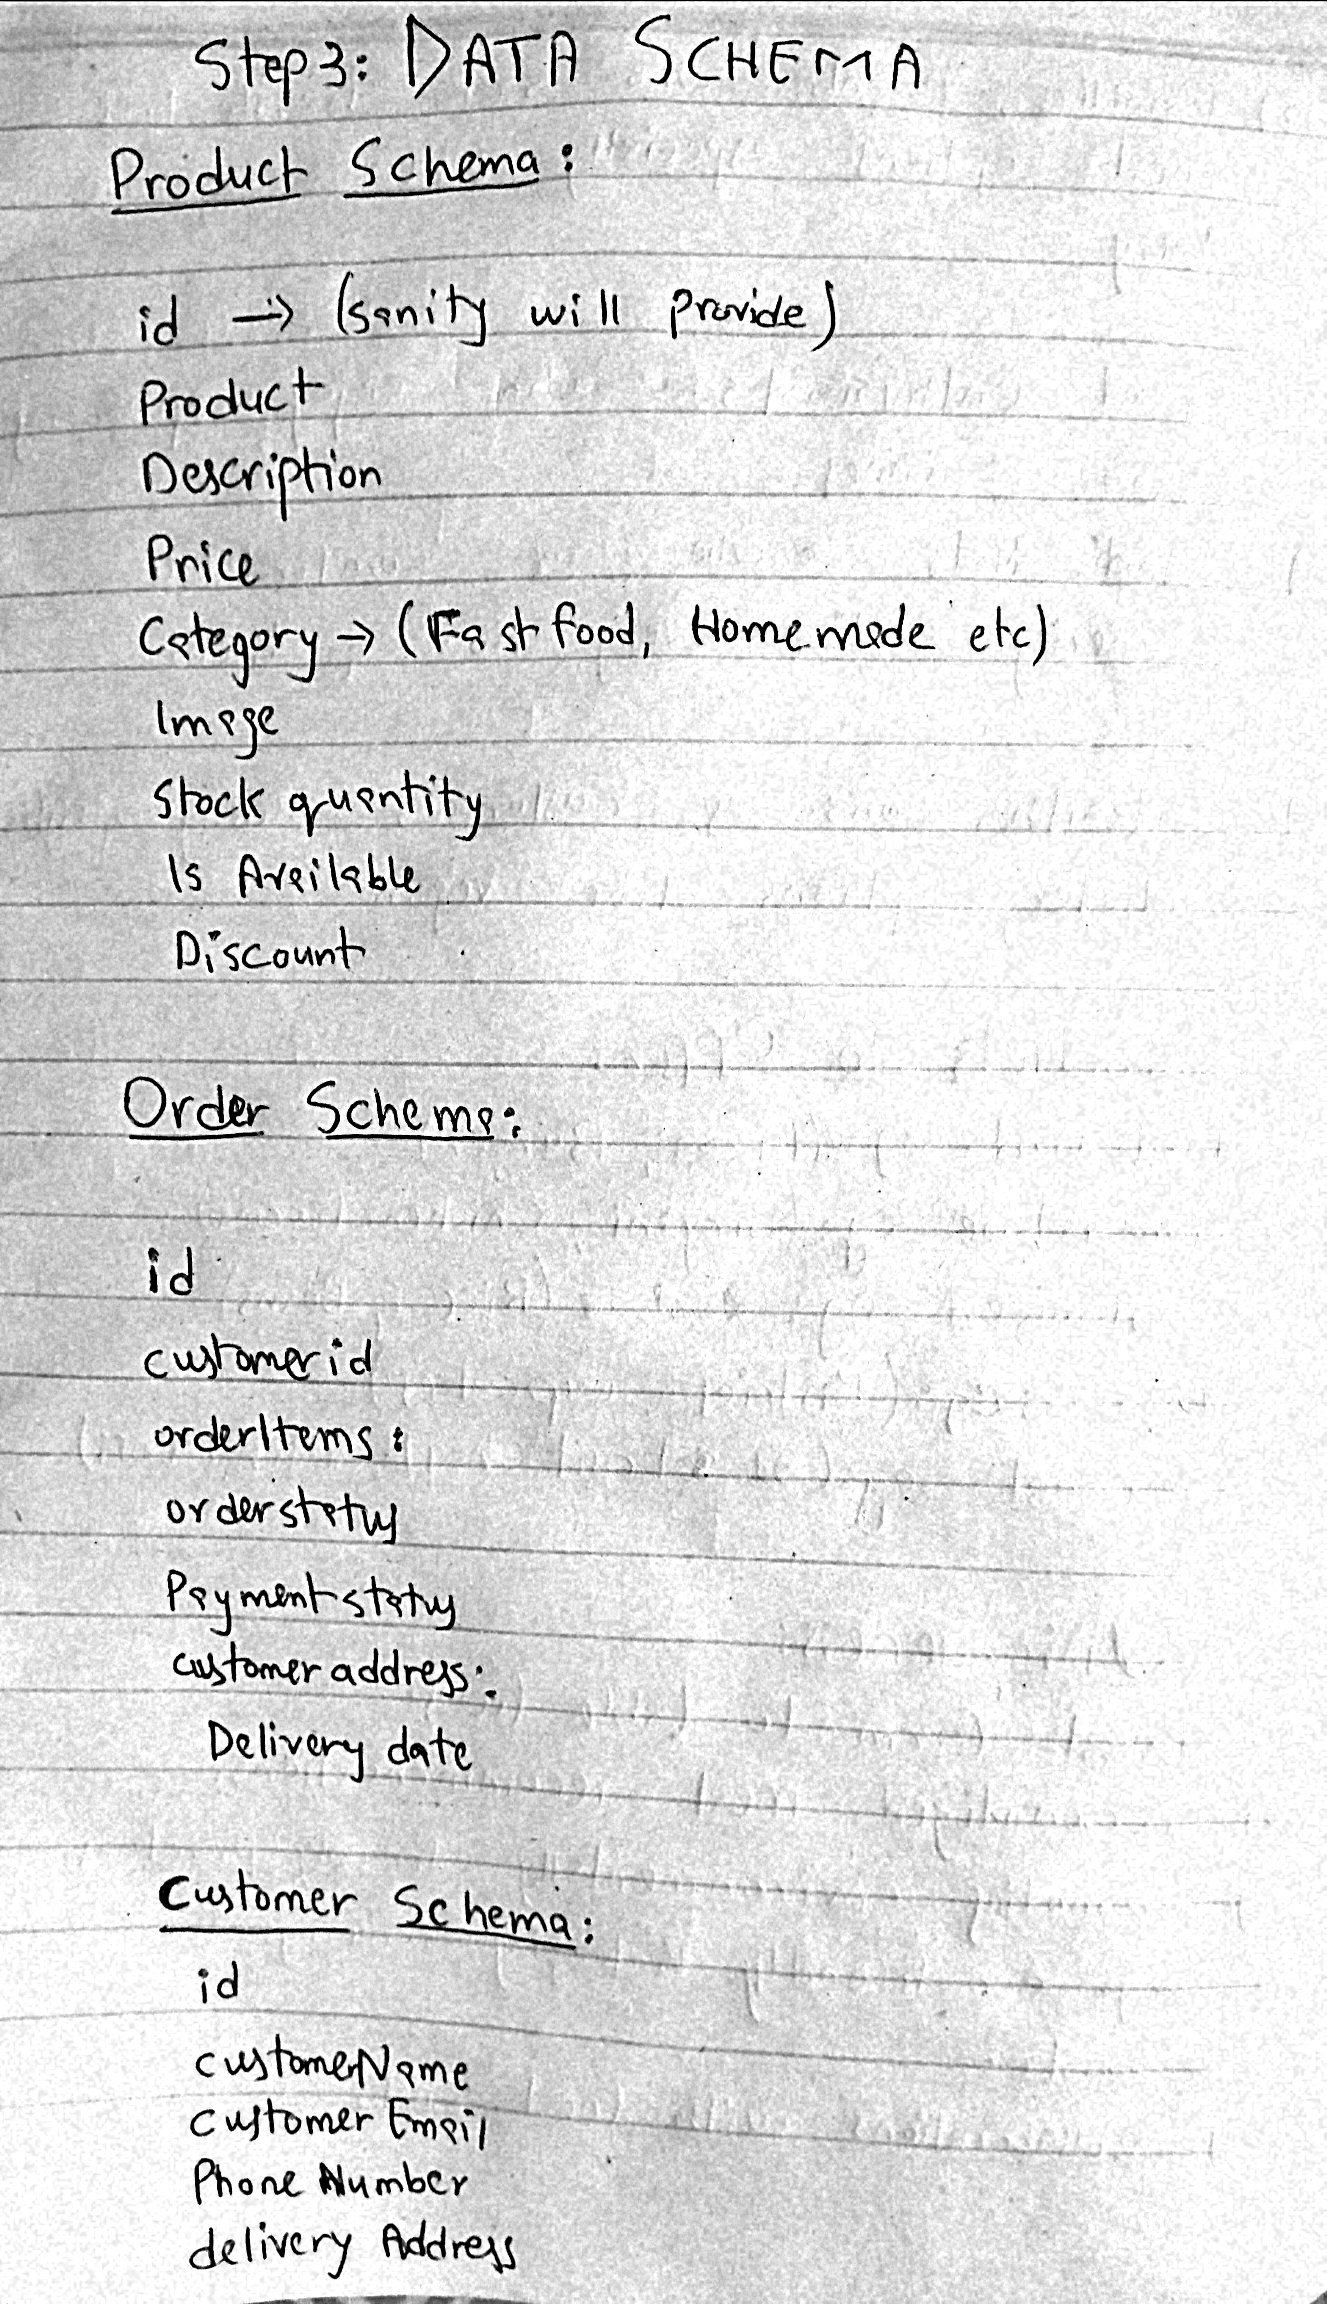 Step3: DATA SCHEMA
Product Schema:
id → (sanity will provide)
Product
Description
Price
Category → (Fast food, Homemade etc)
Image
Stock quantity
Is Available
Discount
Order Schema:
id
customerid
orderItems:
orderstatus
Paymentstatus
customer address:
Delivery date
Customer Schema:
id
customerName
customer Email
Phone Number
delivery Address